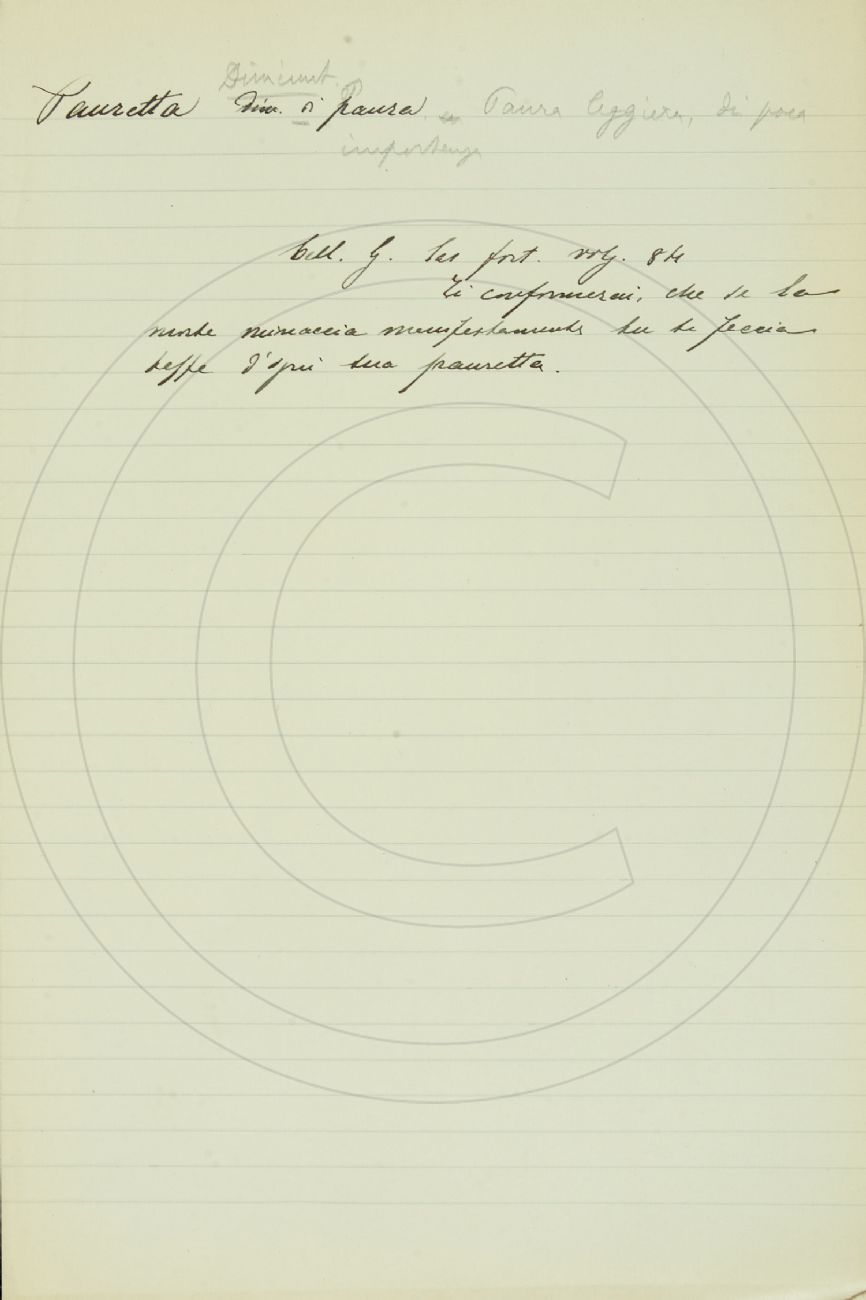 Diminut.
Pauretta dim. di paura. Paura leggiera, di poca
importanza
Cell. G. las fort. volg. 84
Ti confermerai, che se la
morte minaccia manifestamente tu ti faccia
beffe d'ogni sua pauretta.